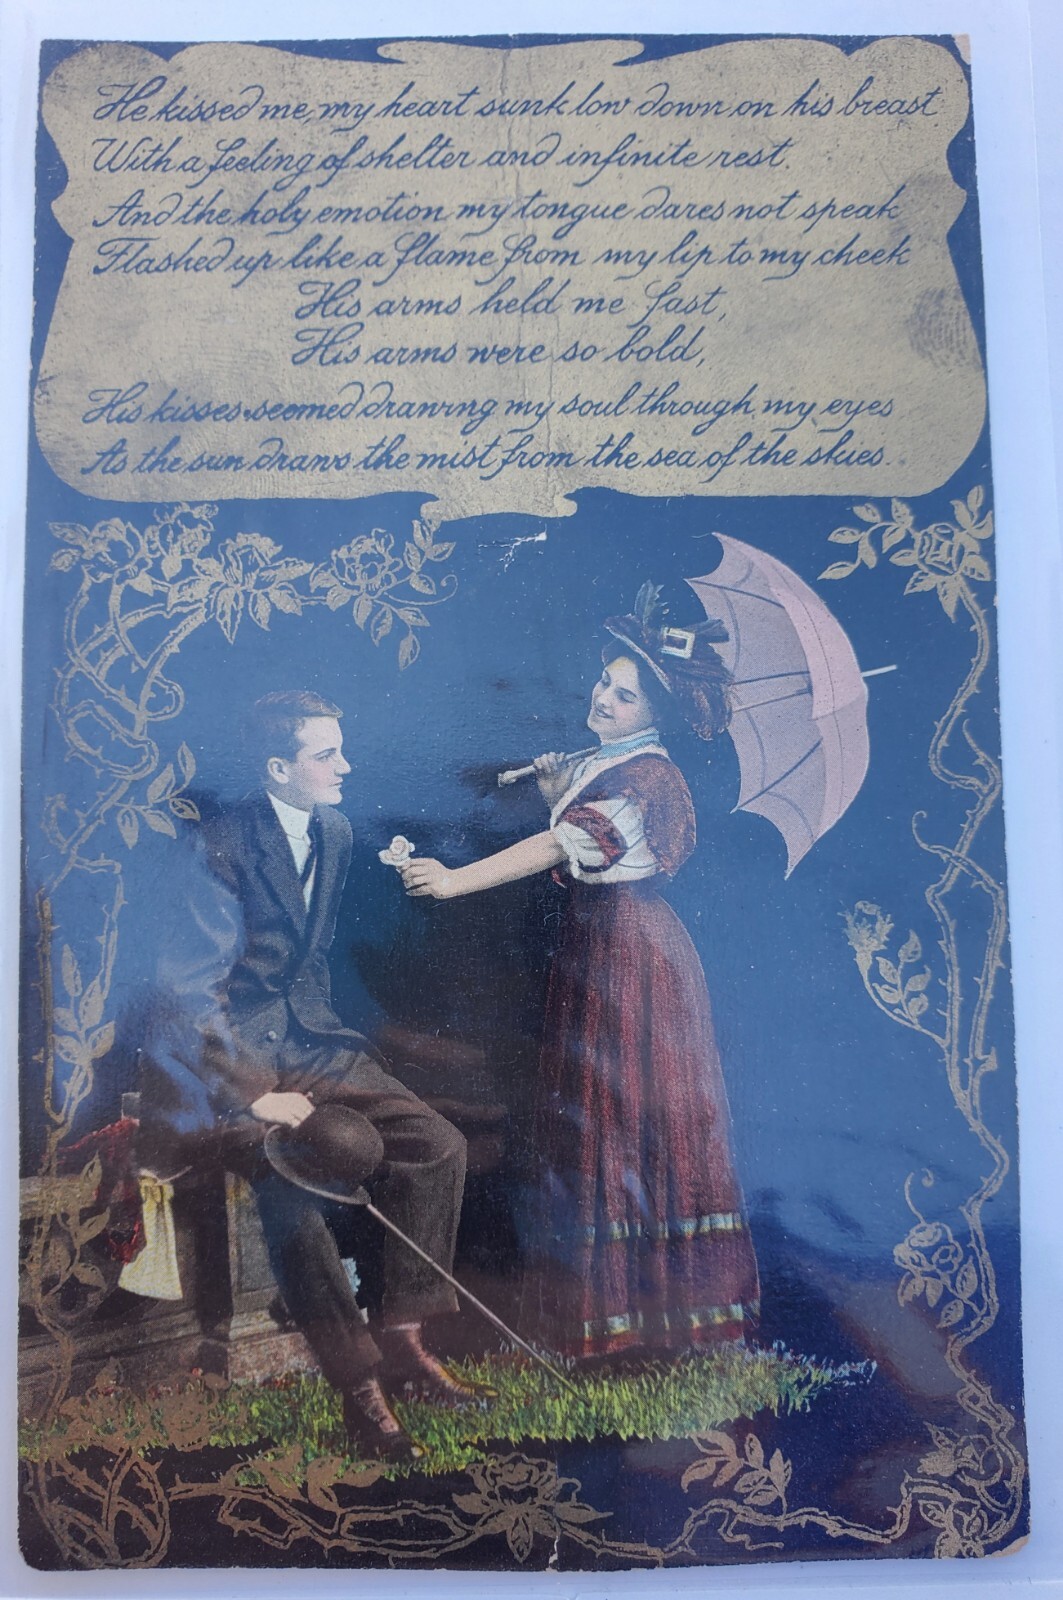 He kissed me, my heart sunk low down on his breast
With a feeling of shelter and infinite rest.
And the holy emotion my tongue dares not speak
Flashed up like a flame from my lip to my cheek
His arms held me fast,
His arms were so bold,
His kisses seemed drawing my soul through my eyes
As the sun draws the mist from the sea of the skies.